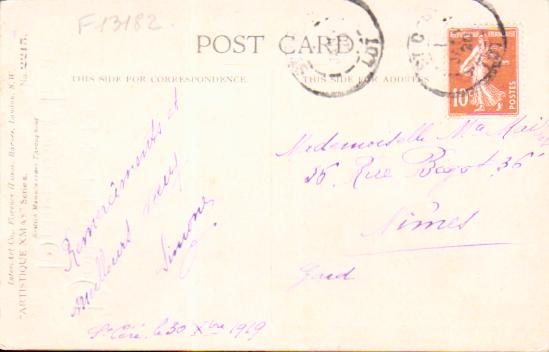 F13182.
POST CARD
THIS SIDE FOR CORRESPONDENCE.
THIS SIDE FOR ADDRESS.
LOT
REPUBLIQUE FRANÇAISE
10c
POSTES
Inter-Art Co., Florence House, Barnes, London, S.W.
"ARTISTIQUE XMAS" Series. No. 2215.
British Manufacture Throughout
Remerciements et
meilleurs vœux
Simone
St Céré, le 30 Xbre 1919
Mademoiselle Ma
36, Rue Bagot, 36
Nîmes
Gard